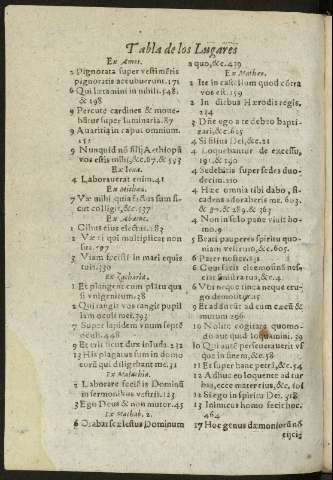 Tabla de los Lugares
Ex Amos.
2 Pignorata super vestimētis
pignoratis accubuerunt. 171
6 Qui lætamini in nihili. 548.
& 198
9 Percute cardines & moue-
būtur super luminaria. 87
9 Auaritia in caput omnium.
9 Nunquid nō filij Aethiopū
vos estis mihi, &c. 67. & 593
Ex Iona.
4 Laborauerat enim. 41
Ex Michea.
7 Væ mihi, quia factus sum si-
cut colligit, &c. 537
Ex Abacuc.
1 Cibus eius electus. 183
2 Væ ei qui multiplicat non
sua. 597
3 Viam fecisti in mari equis
tuis. 330
Ex Zacharia.
12 Et plangent eum planctu qua
si vnigenitum. 38
2 Qui tangit vos tangit pupil
lam oculi mei. 393
7 Super lapidem vnum septē
oculi. 448
9 Et erit sicut dux in Iuda. 232
13 His plagatus sum in domo
eorū qui diligebant me. 31
Ex Malachia.
2 Laborare fecistis Dominū
in sermonibus vestris. 123
3 Ego Deus & non mutor. 45
Ex Machab. 2.
6 Orabat scelestus Dominum
a quo, &c. 439
Ex Matheo.
2 Ite in castellum quod cōtra
vos est. 159
2 In diebus Herodis regis.
234
3 Dñe ego a te debeo bapti-
zari, &c. 625
4 Si filius Dei, &c. 21
4 Loquebantur de excessu,
191. & 190
4 Sedebatis super sedes duo-
decim. 210
4 Hæc omnia tibi dabo, si
cadens adoraberis me. 603.
& 97. & 289. & 363
4 Non in solo pane viuit ho-
mo. 9
5 Beati pauperes spiritu quo-
niam vestrum, &c. 605.
6 Pater noster. 131
6 Cum facis eleemosinā nes-
ciat sinistra tua, &c. 4
6 Vbi neque tinea neque eru-
go demolitur. 95
9 Et adducūt ad eum cæcū &
mutum 296
10 Nolite cogitare quomo-
do aut quid loquamini. 39
10 Qui autē perseuerauerit vs-
que in finem, &c. 58
11 Et super hanc petrā, &c. 54
12 Adhuc eo loquente ad tur
bas, ecce mater eius, &c. 101
12 Si ego in spiritu Dei. 318
13 Inimicus homo fecit hoc.
464
17 Hoc genus dæmoniorū nō
eijci